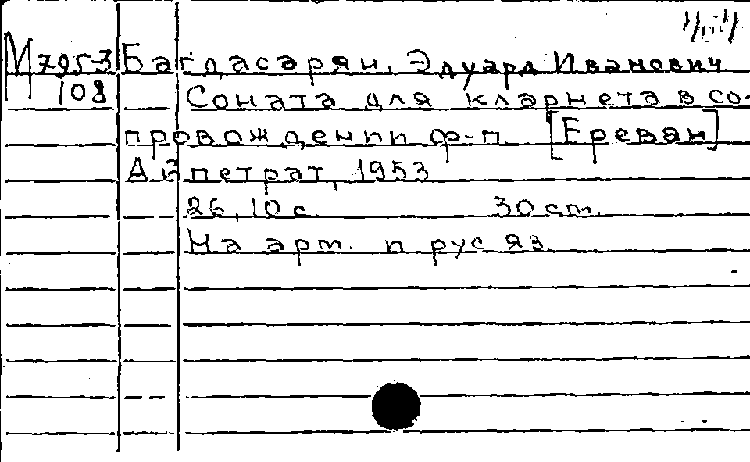 М 7953 Багдасарян, Эдуард Иванович
108 Соната для кларнета в со-
провождении ф-п. [Ереван]
Айпетрат, 1953
26, 10 с. 30 cm.
На арм. и рус яз.